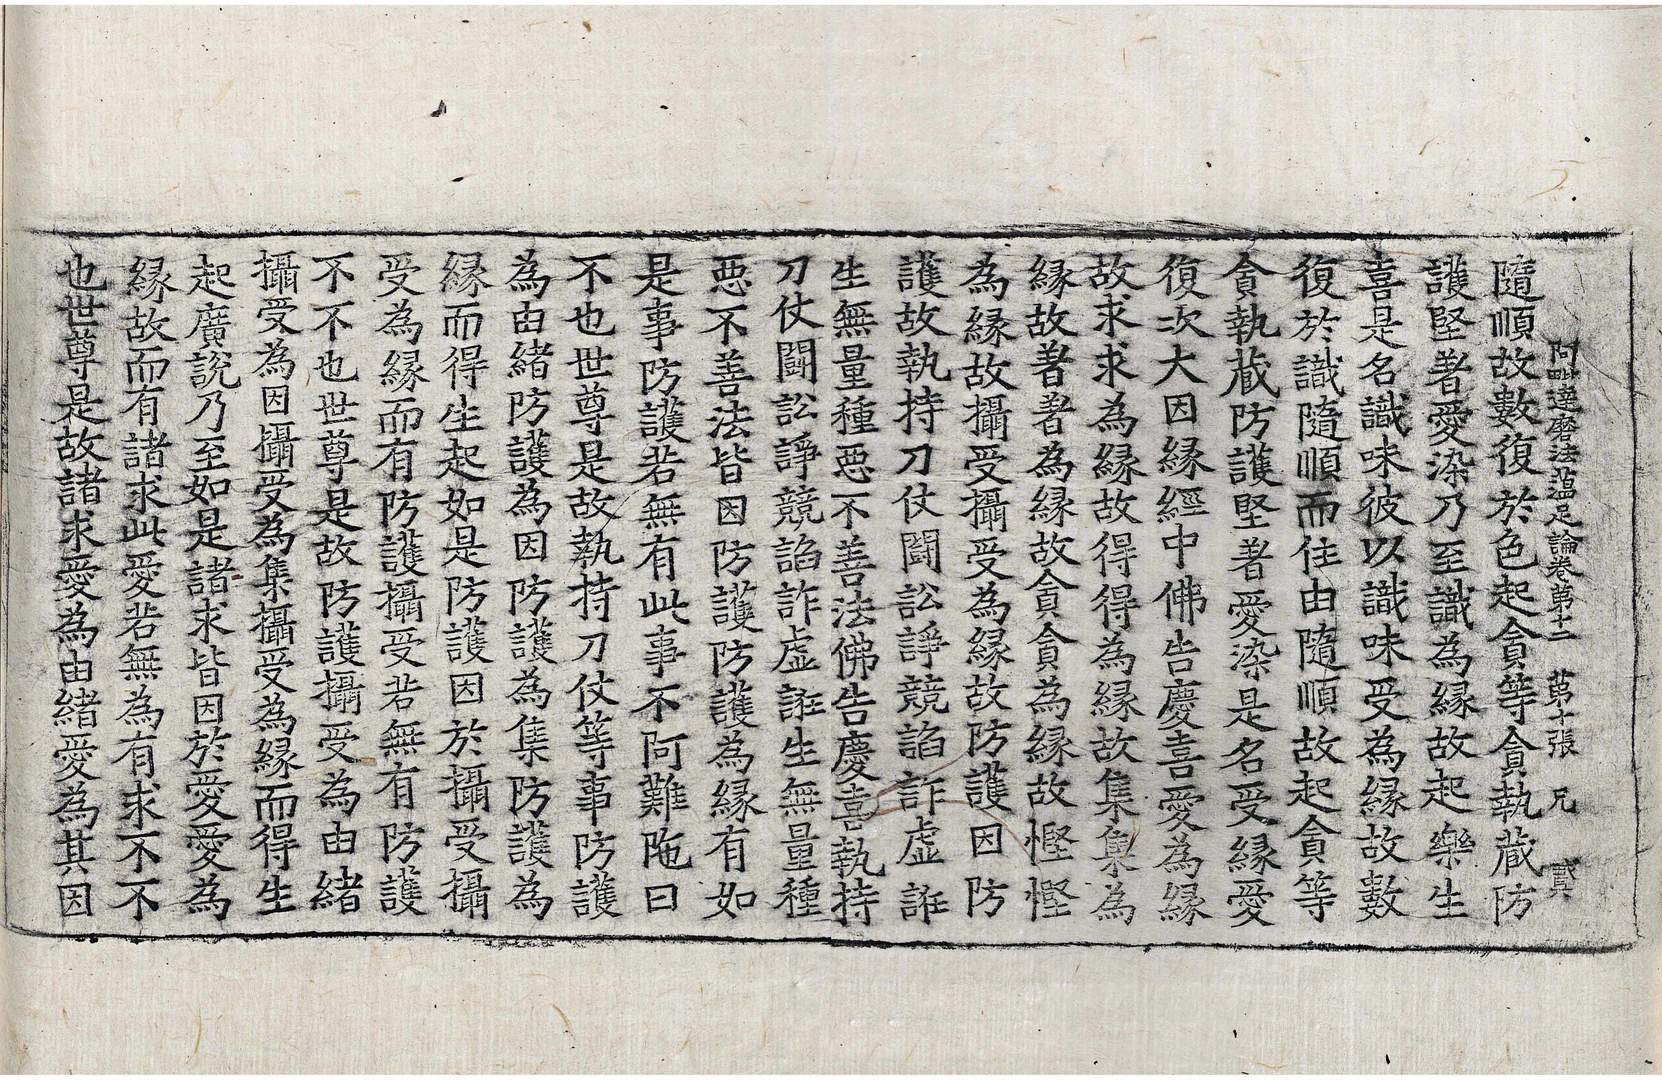 阿毗達磨法蘊足論卷第十二 第十張 兄
隨順故數復於色起貪等貪執藏防
護堅著愛染乃至識為縁故起樂生
喜是名識味彼以識味受為縁故數
復於識隨順而住由隨順故起貪等
貪執藏防護堅著愛染是名受縁愛
復次大因縁經中佛告慶喜愛為縁
故求求為縁故得得為縁故集集為
縁故著著為縁故貪貪為縁故慳慳
為縁故攝受攝受為縁故防護因防
護故執持刀仗闘訟諍競諂詐虛誑
生無量種惡不善法佛告慶喜執持
刀仗闘訟諍競諂詐虛誑生無量種
惡不善法皆因防護防護為縁有如
是事防護若無有此事不阿難陁曰
不也世尊是故執持刀仗等事防護
為由緒防護為因防護為集防護為
縁而得生起如是防護因於攝受攝
受為縁而有防護攝受若無有防護
不不也世尊是故防護攝受為由緒
攝受為因攝受為集攝受為縁而得生
起廣說乃至如是諸求皆因於愛愛為
縁故而有諸求此愛若無為有求不不
也世尊是故諸求愛為由緒愛為其因